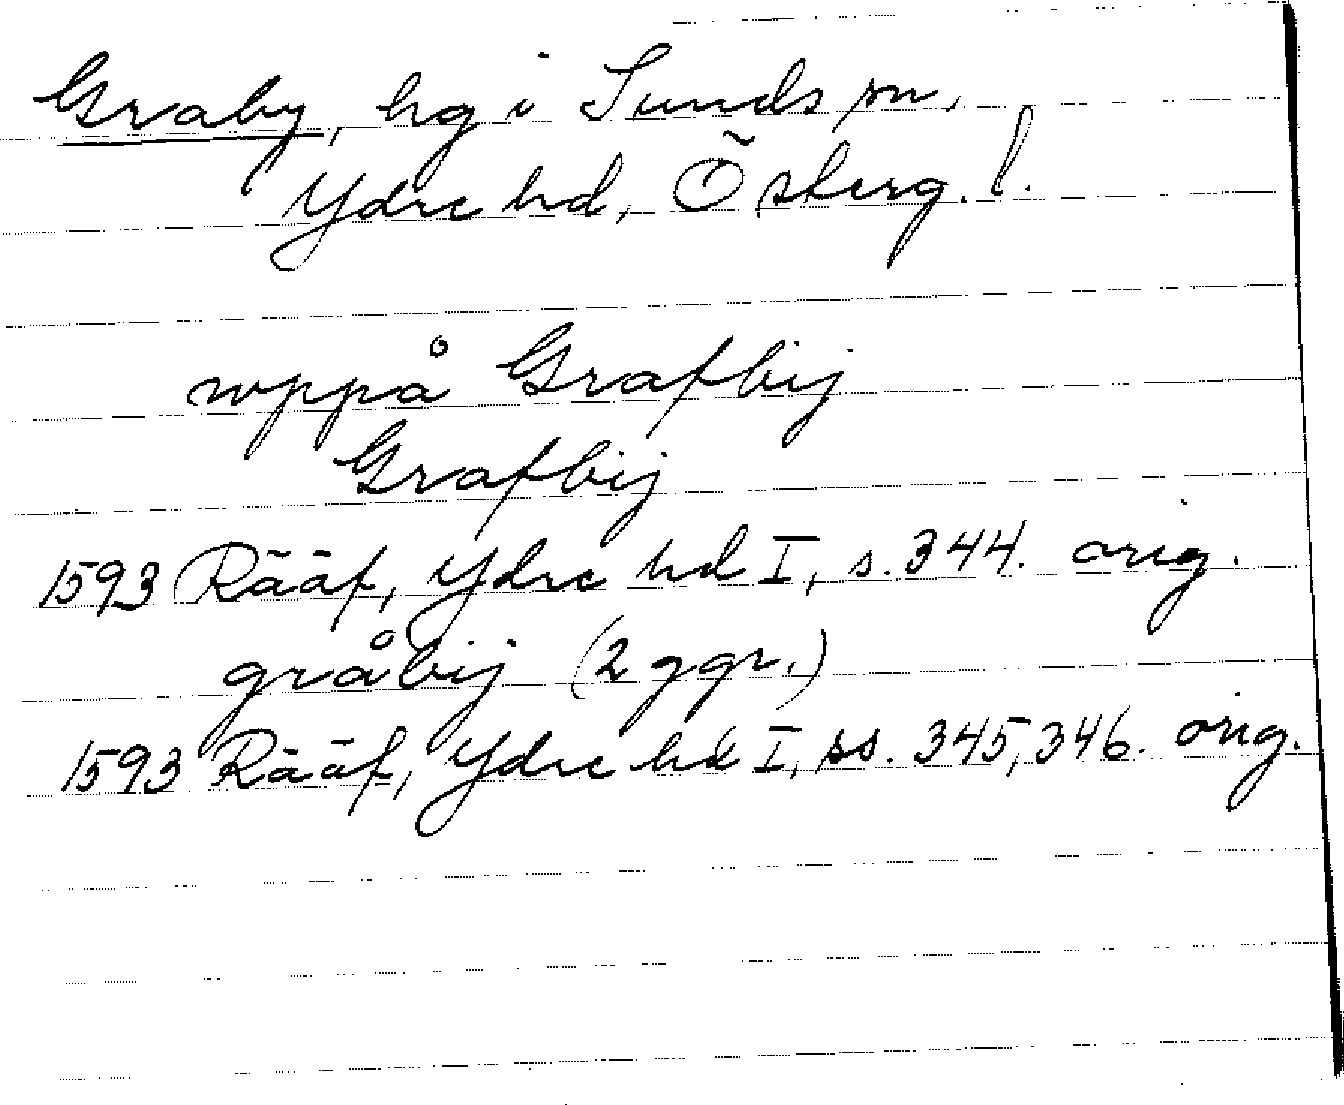 Graby, hg i Sunds sn,
Ydre hd, Österg. l.
wppå Grafbij
Grafbij
1593 Rääf, Ydre hd I, s. 344. orig.
gråbij (2 ggr.)
1593 Rääf, Ydre hd I, ss. 345, 346. orig.